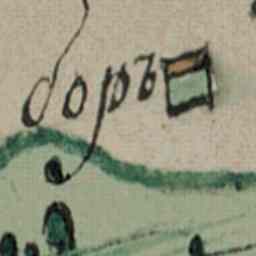 боръ